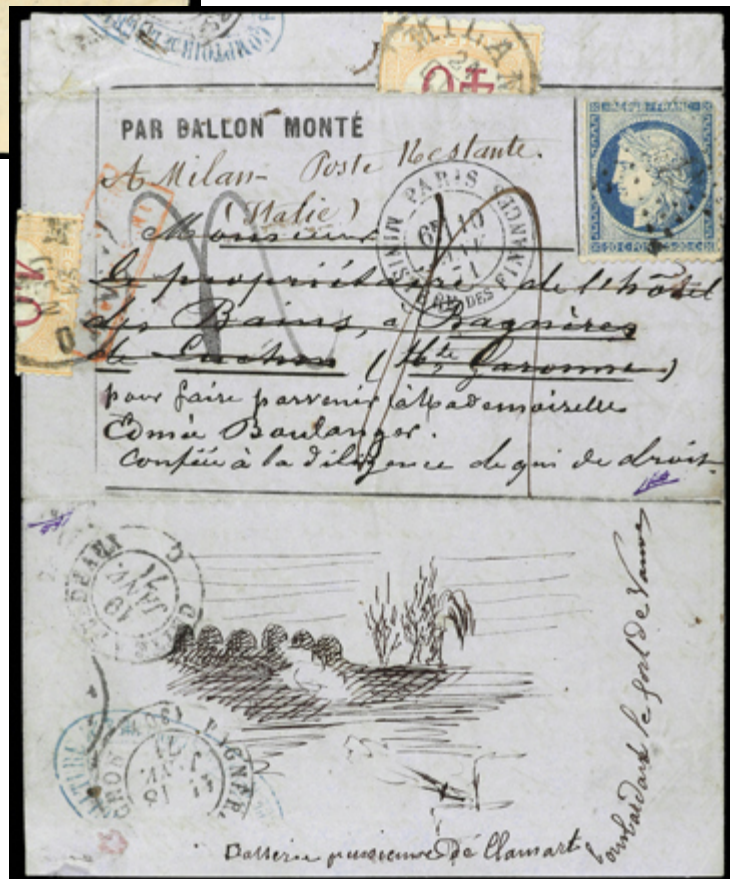 COMPTOIR DE
MILAN
40
PAR BALLON MONTÉ
A Milan - Poste Restante.
(Italie)
Monsieur
le propriétaire de l'hôtel
des Bains, a Bagnères
de Luchon (Hte Garonne)
pour faire parvenir à Mademoiselle
Edmée Boulanger.
Confiée à la diligence de qui de droit.
PARIS
6E 10
71
MINIS FINANCES
RE DES
20 C 20 C
40
MILANO
19
JANV.
71
BAGNÈRES
18
Batterie prussienne de Clamart
bombardant le fort de Vanves